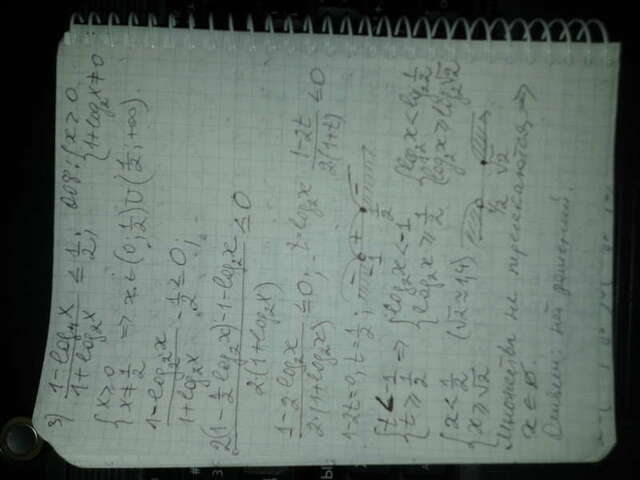 3) (1-log₄x)/(1+log₂x) ≤ 1/2; ООВ: {x>0 {1+log₂x≠0
{x>0 {x≠1/2 ⇒ x∈(0;1/2)∪(1/2;+∞).
(1-log₄x)/(1+log₂x) - 1/2 ≤ 0;
(2(1-1/2log₂x)-1-log₂x)/(2(1+log₂x)) ≤ 0
(1-2log₂x)/(2(1+log₂x)) ≤ 0; t=log₂x (1-2t)/(2(1+t)) ≤ 0
1-2t=0, t=1/2; - -1 + 1/2 -
{t<-1 {t≥1/2 ⇒ {log₂x<-1 {log₂x≥1/2 {log₂x<log₂1/2 {log₂x≥log₂√2
{x<1/2 {x≥√2 (√2≈1,4) 1/2 √2
Множества не пересекаются, ⇒
x∈∅.
Ответ: нет решений.